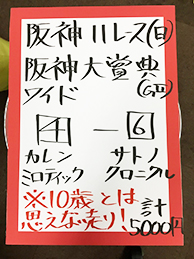 阪神11レース(日)
阪神大賞典
ワイド (GⅡ)
4 — 6
カレン サトノ
ミロティック クロニクル
※10歳とは
思えない走り! 計
5000円